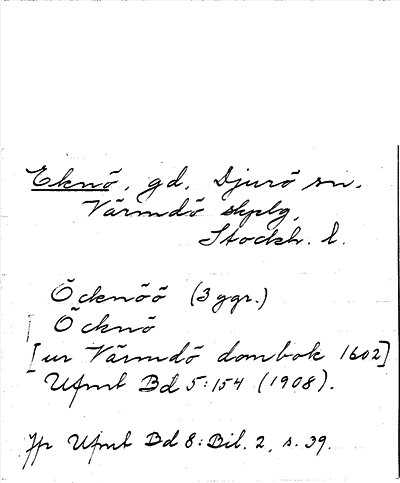 Eknö, gd, Djurö sn.
Värmdö skplg,
Stockh. l.
Öcknöö (3 ggr.)
Öcknö
[ur Värmdö dombok 1602]
Ufmt Bd 5:154 (1908).
Jfr Ufmt Bd 8: Bil. 2, s. 39.